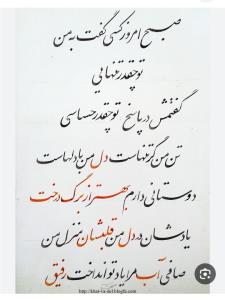 صبح امروز کسی گفت به من
تو چقدر تنهایی
گفتمش در پاسخ تو چقدر حساسی
تن من گر تنهاست دل من با دلهاست
دوستانی دارم بهتر از برگ درخت
یادشان در دل من قلبشان منزل من
صافی آب مرا یاد تو انداخت رفیق